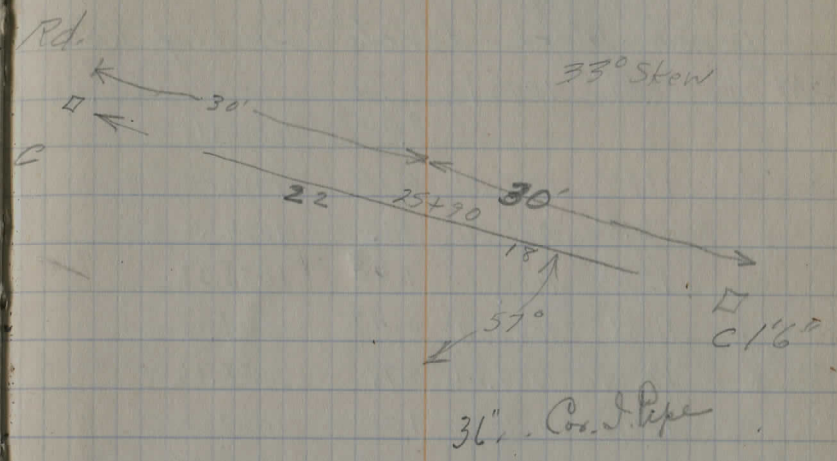 Rd.
33° Skew
30'
C
22
25+90
30'
18
57°
C 1'6"
36". Cor. I. Pipe